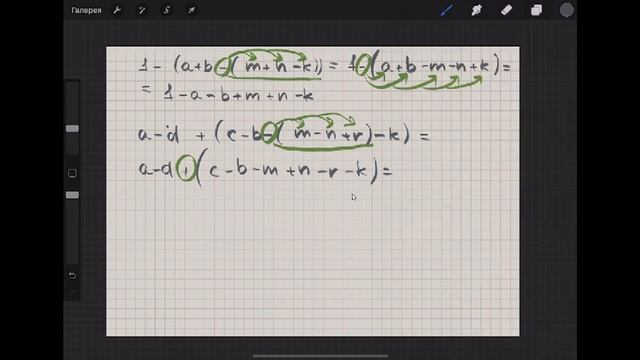 Галерея
1 - (a+b-(m+n-k)) = 1-(a+b-m-n+k)=
= 1-a-b+m+n-k
a-d + (c-b-(m-n+r)-k) =
a-d + (c-b-m+n-r-k)=